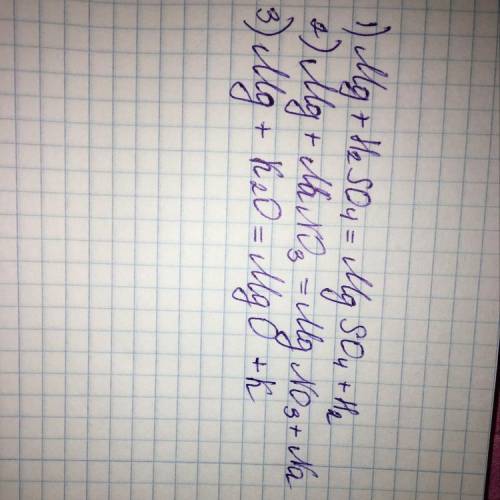 1) Mg + H2SO4 = MgSO4 + H2
2) Mg + NaNO3 = MgNO3 + Na
3) Mg + K2O = MgO + K